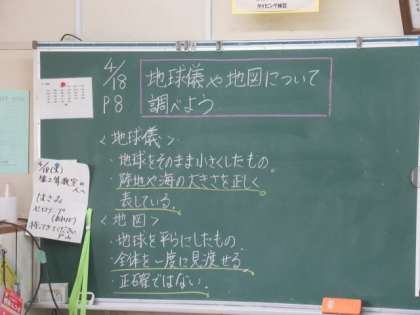 4/18
P8
地球儀や地図について
調べよう
<地球儀>
・地球をそのまま小さくしたもの。
・陸地や海の大きさを正しく
表している。
<地図>
・地球を平らにしたもの.
・全体を一度に見渡せる
正確ではない.